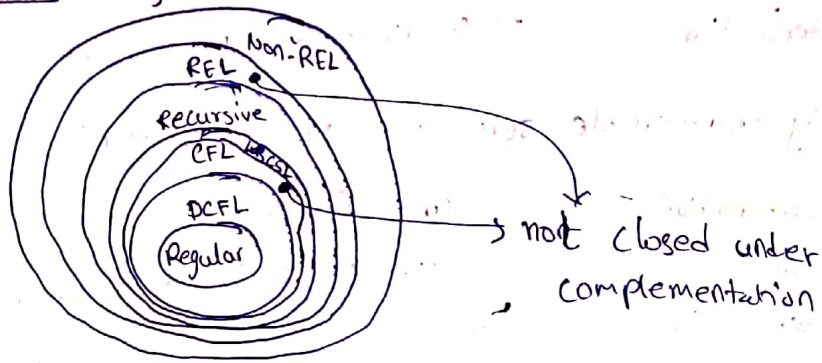 Non-REL
REL
Recursive
CFL
CSL
DCFL
Regular
not closed under
complementation